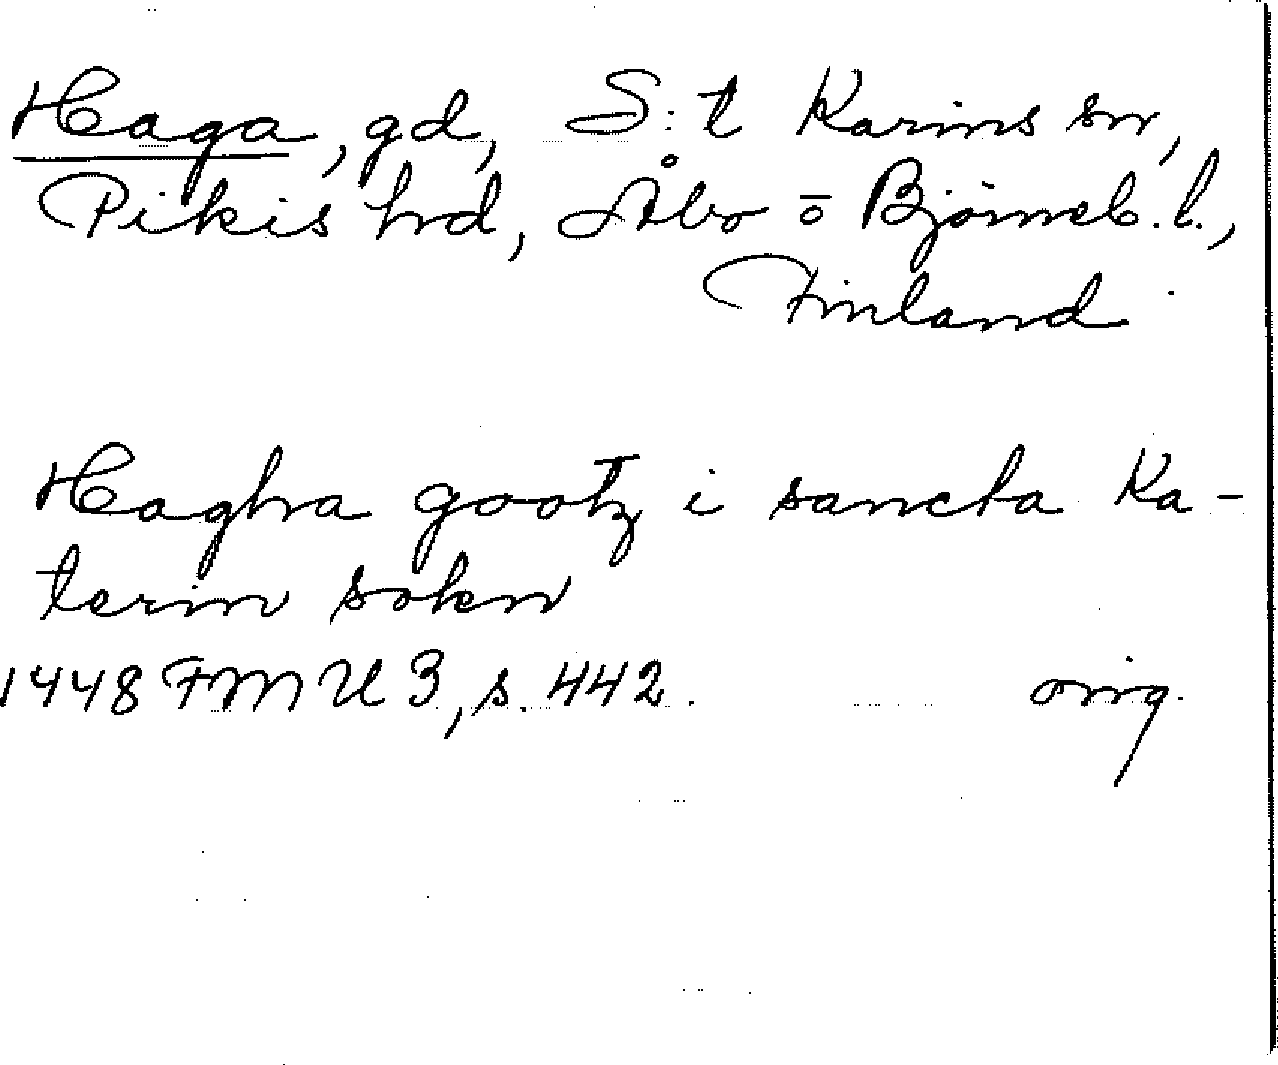 Haga, gd, S:t Karins sn,
Pikis hrd, Åbo o Björneb. l.,
Finland
Haghra gootz i sancta Ka-
terin sokn
1448 FMU 3, s. 442. orig.